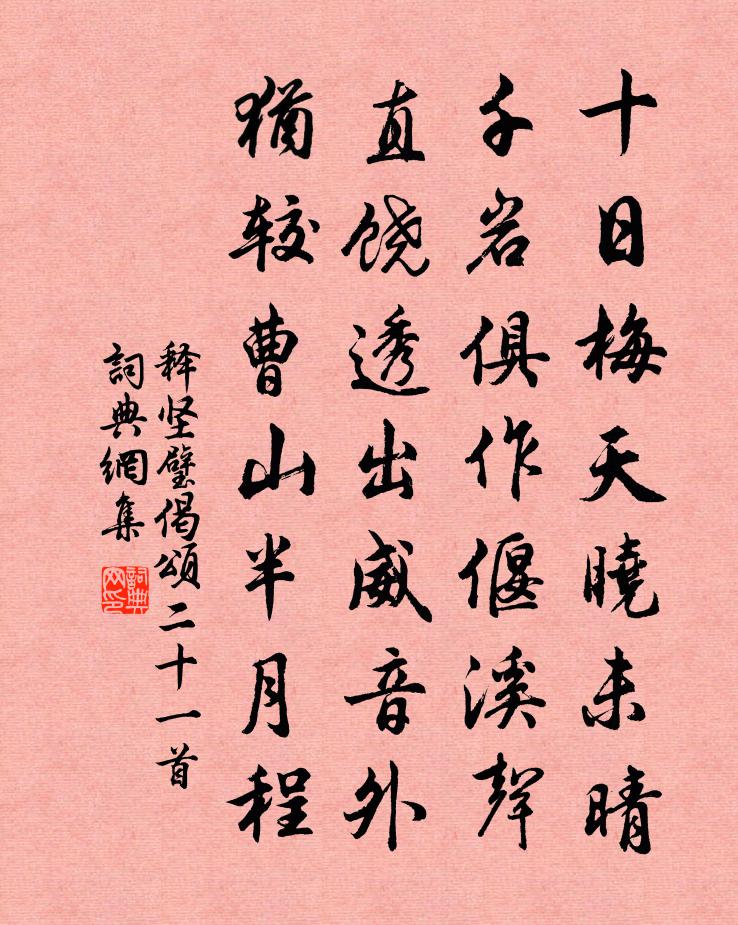 十日梅天曉未晴
千岩俱作偃溪聲
直饶透出威音外
猶较曹山半月程
释坚璧偈頌二十一首
詞典網集
詞典网印